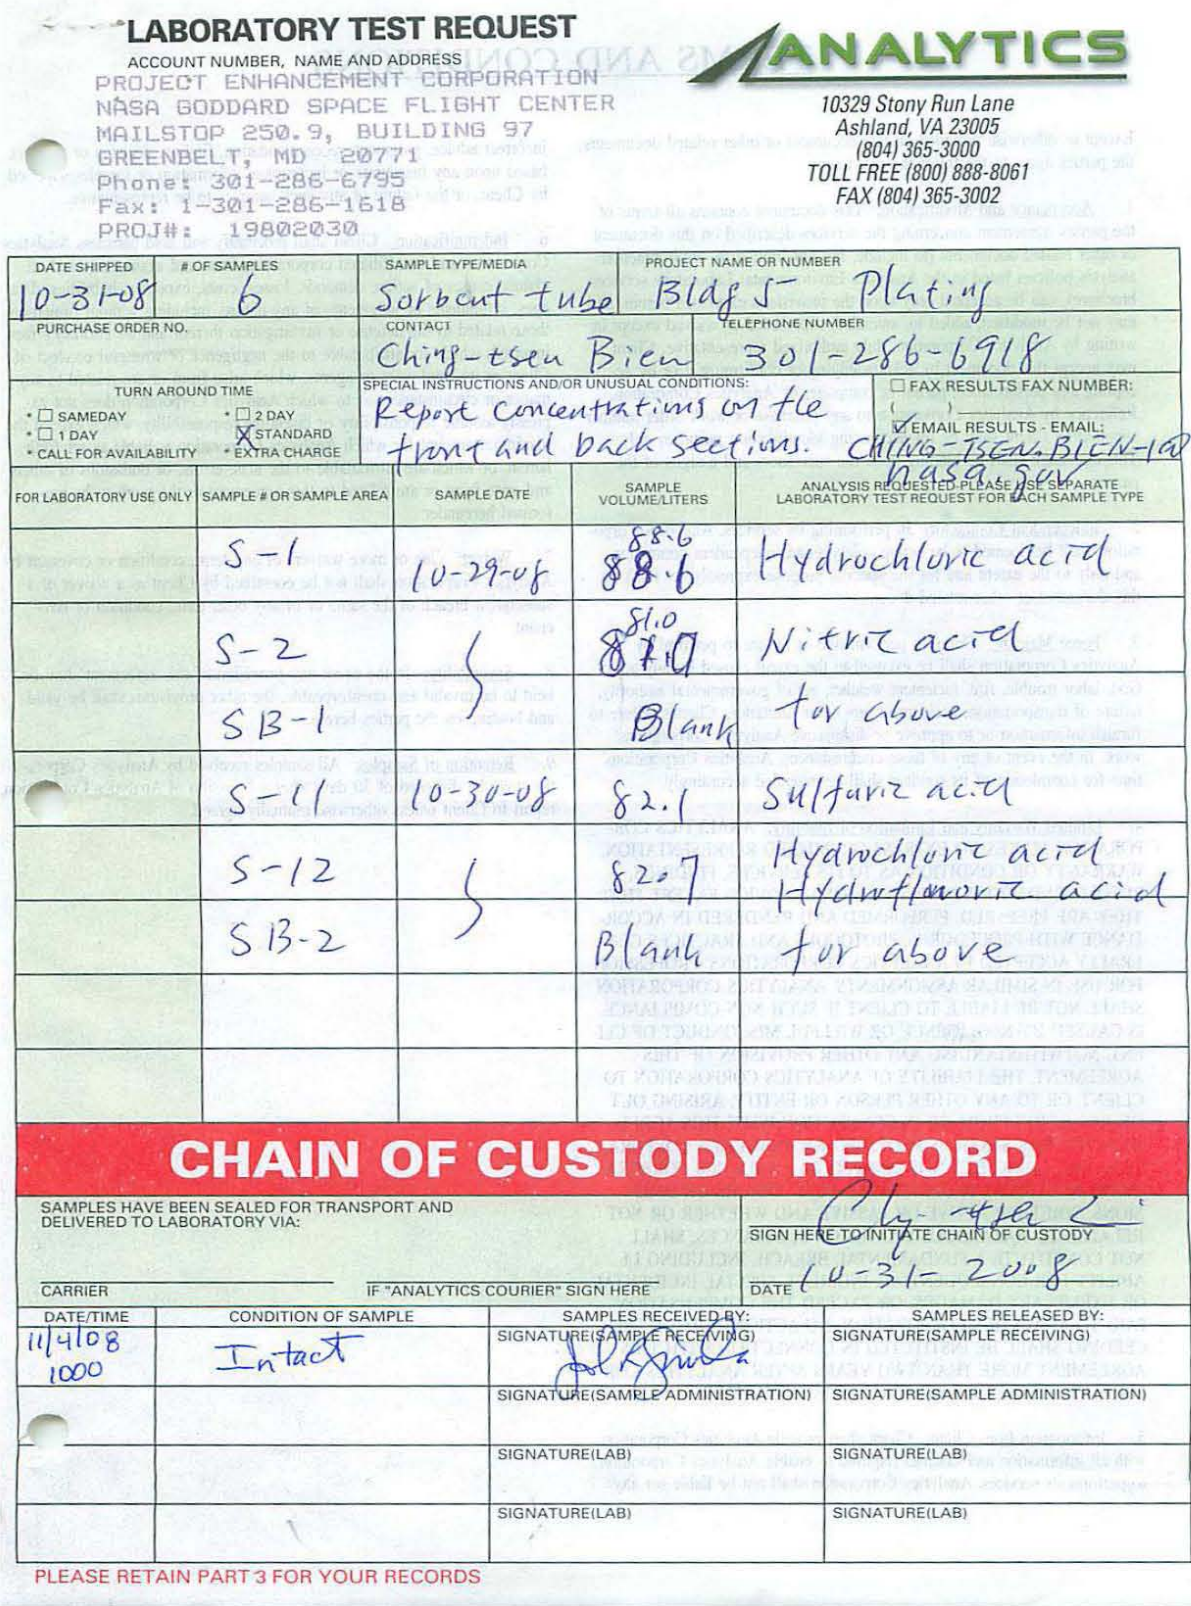 LABORATORY TEST REQUEST
ANALYTICS
ACCOUNT NUMBER, NAME AND ADDRESS
PROJECT ENHANCEMENT CORPORATION
NASA GODDARD SPACE FLIGHT CENTER
MAILSTOP 250.9, BUILDING 97
GREENBELT, MD 20771
Phone: 301-286-6795
Fax: 1-301-286-1618
PROJ#: 19802030
10329 Stony Run Lane
Ashland, VA 23005
(804) 365-3000
TOLL FREE (800) 888-8061
FAX (804) 365-3002
DATE SHIPPED # OF SAMPLES SAMPLE TYPE/MEDIA PROJECT NAME OR NUMBER
10-31-08 6 Sorbent tube Bldg 5- Plating
PURCHASE ORDER NO. CONTACT TELEPHONE NUMBER
Ching-tsen Bien 301-286-6918
TURN AROUND TIME
• ☐ SAMEDAY • ☐ 2 DAY
• ☐ 1 DAY ☒ STANDARD
• CALL FOR AVAILABILITY • EXTRA CHARGE
SPECIAL INSTRUCTIONS AND/OR UNUSUAL CONDITIONS:
Report Concentrations on the
front and back sections.
☐ FAX RESULTS FAX NUMBER:
☑ EMAIL RESULTS - EMAIL:
CHING-TSEN.BIEN-1@
nasa.gov
FOR LABORATORY USE ONLY SAMPLE # OR SAMPLE AREA SAMPLE DATE SAMPLE VOLUME/LITERS ANALYSIS REQUESTED-PLEASE USE SEPARATE LABORATORY TEST REQUEST FOR EACH SAMPLE TYPE
88.6
S-1 10-29-08 88.6 Hydrochloric acid
81.0
S-2 81.0 Nitric acid
SB-1 Blank for above
S-11 10-30-08 82.1 Sulfuric acid
S-12 82.7 Hydrochloric acid
Hydrofluoric acid
SB-2 Blank for above
CHAIN OF CUSTODY RECORD
SAMPLES HAVE BEEN SEALED FOR TRANSPORT AND
DELIVERED TO LABORATORY VIA:
SIGN HERE TO INITIATE CHAIN OF CUSTODY
CARRIER IF "ANALYTICS COURIER" SIGN HERE DATE 10-31-2008
DATE/TIME CONDITION OF SAMPLE SAMPLES RECEIVED BY: SAMPLES RELEASED BY:
SIGNATURE(SAMPLE RECEIVING) SIGNATURE(SAMPLE RECEIVING)
11/4/08 Intact
1000
SIGNATURE(SAMPLE ADMINISTRATION) SIGNATURE(SAMPLE ADMINISTRATION)
SIGNATURE(LAB) SIGNATURE(LAB)
SIGNATURE(LAB) SIGNATURE(LAB)
PLEASE RETAIN PART 3 FOR YOUR RECORDS